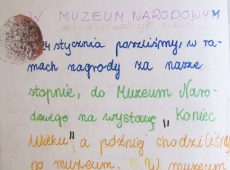 W MUZEUM NARODOWYM
24 stycznia poszliśmy, w ra-
mach nagrody za nasze
stopnie, do Muzeum Naro-
dowego na wystawę "Koniec
Wieku", a później chodziliśmy
po muzeum. W muzeum